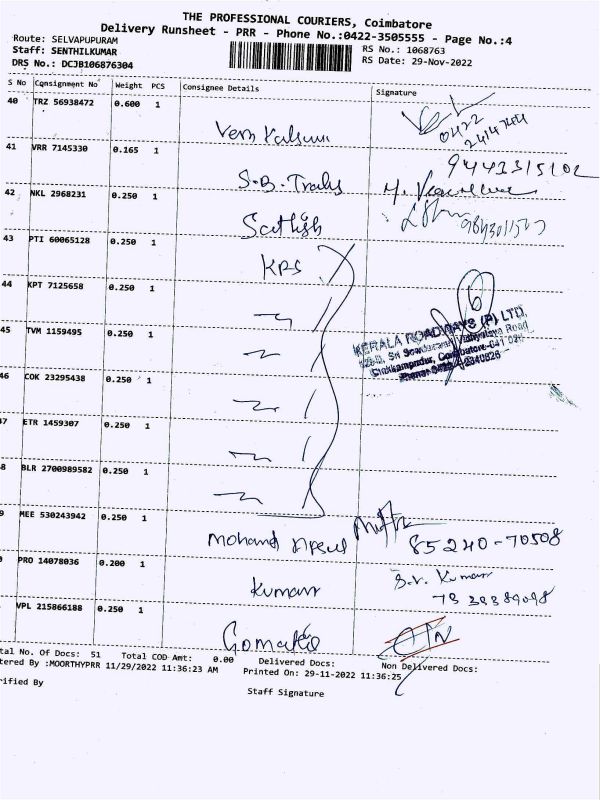 THE PROFESSIONAL COURIERS, Coimbatore
Delivery Runsheet - PRR - Phone No.:0422-3505555 - Page No.:4
Route: SELVAPUPURAM
RS No.: 1068763
Staff: SENTHILKUMAR
RS Date: 29-Nov-2022
DRS No.: DCJB106876304
S No Consignment No Weight PCS Consignee Details Signature
40 TRZ 56938472 0.600 1
0422
41 VRR 7145330 0.165 1 S.B.
42 NKL 2968231 0.250 1 Sathish
43 PTI 60065128 0.250 1 KRS
44 KPT 7125658 0.250 1
45 TVM 1159495 0.250 1
KERALA ROADWAYS (P) LTD.
46 COK 23295438 0.250 1
47 ETR 1459307 0.250 1
8 BLR 2700989582 0.250 1
9 MEE 530243942 0.250 1 Mohamd 85240-70508
PRO 14078036 0.200 1 Kumarr S.V. Kumarr
VPL 215866188 0.250 1
tal No. Of Docs: 51 Total COD Amt: 0.00 Delivered Docs: Non Delivered Docs:
tered By :MOORTHYPRR 11/29/2022 11:36:23 AM Printed On: 29-11-2022 11:36:25
rified By
Staff Signature